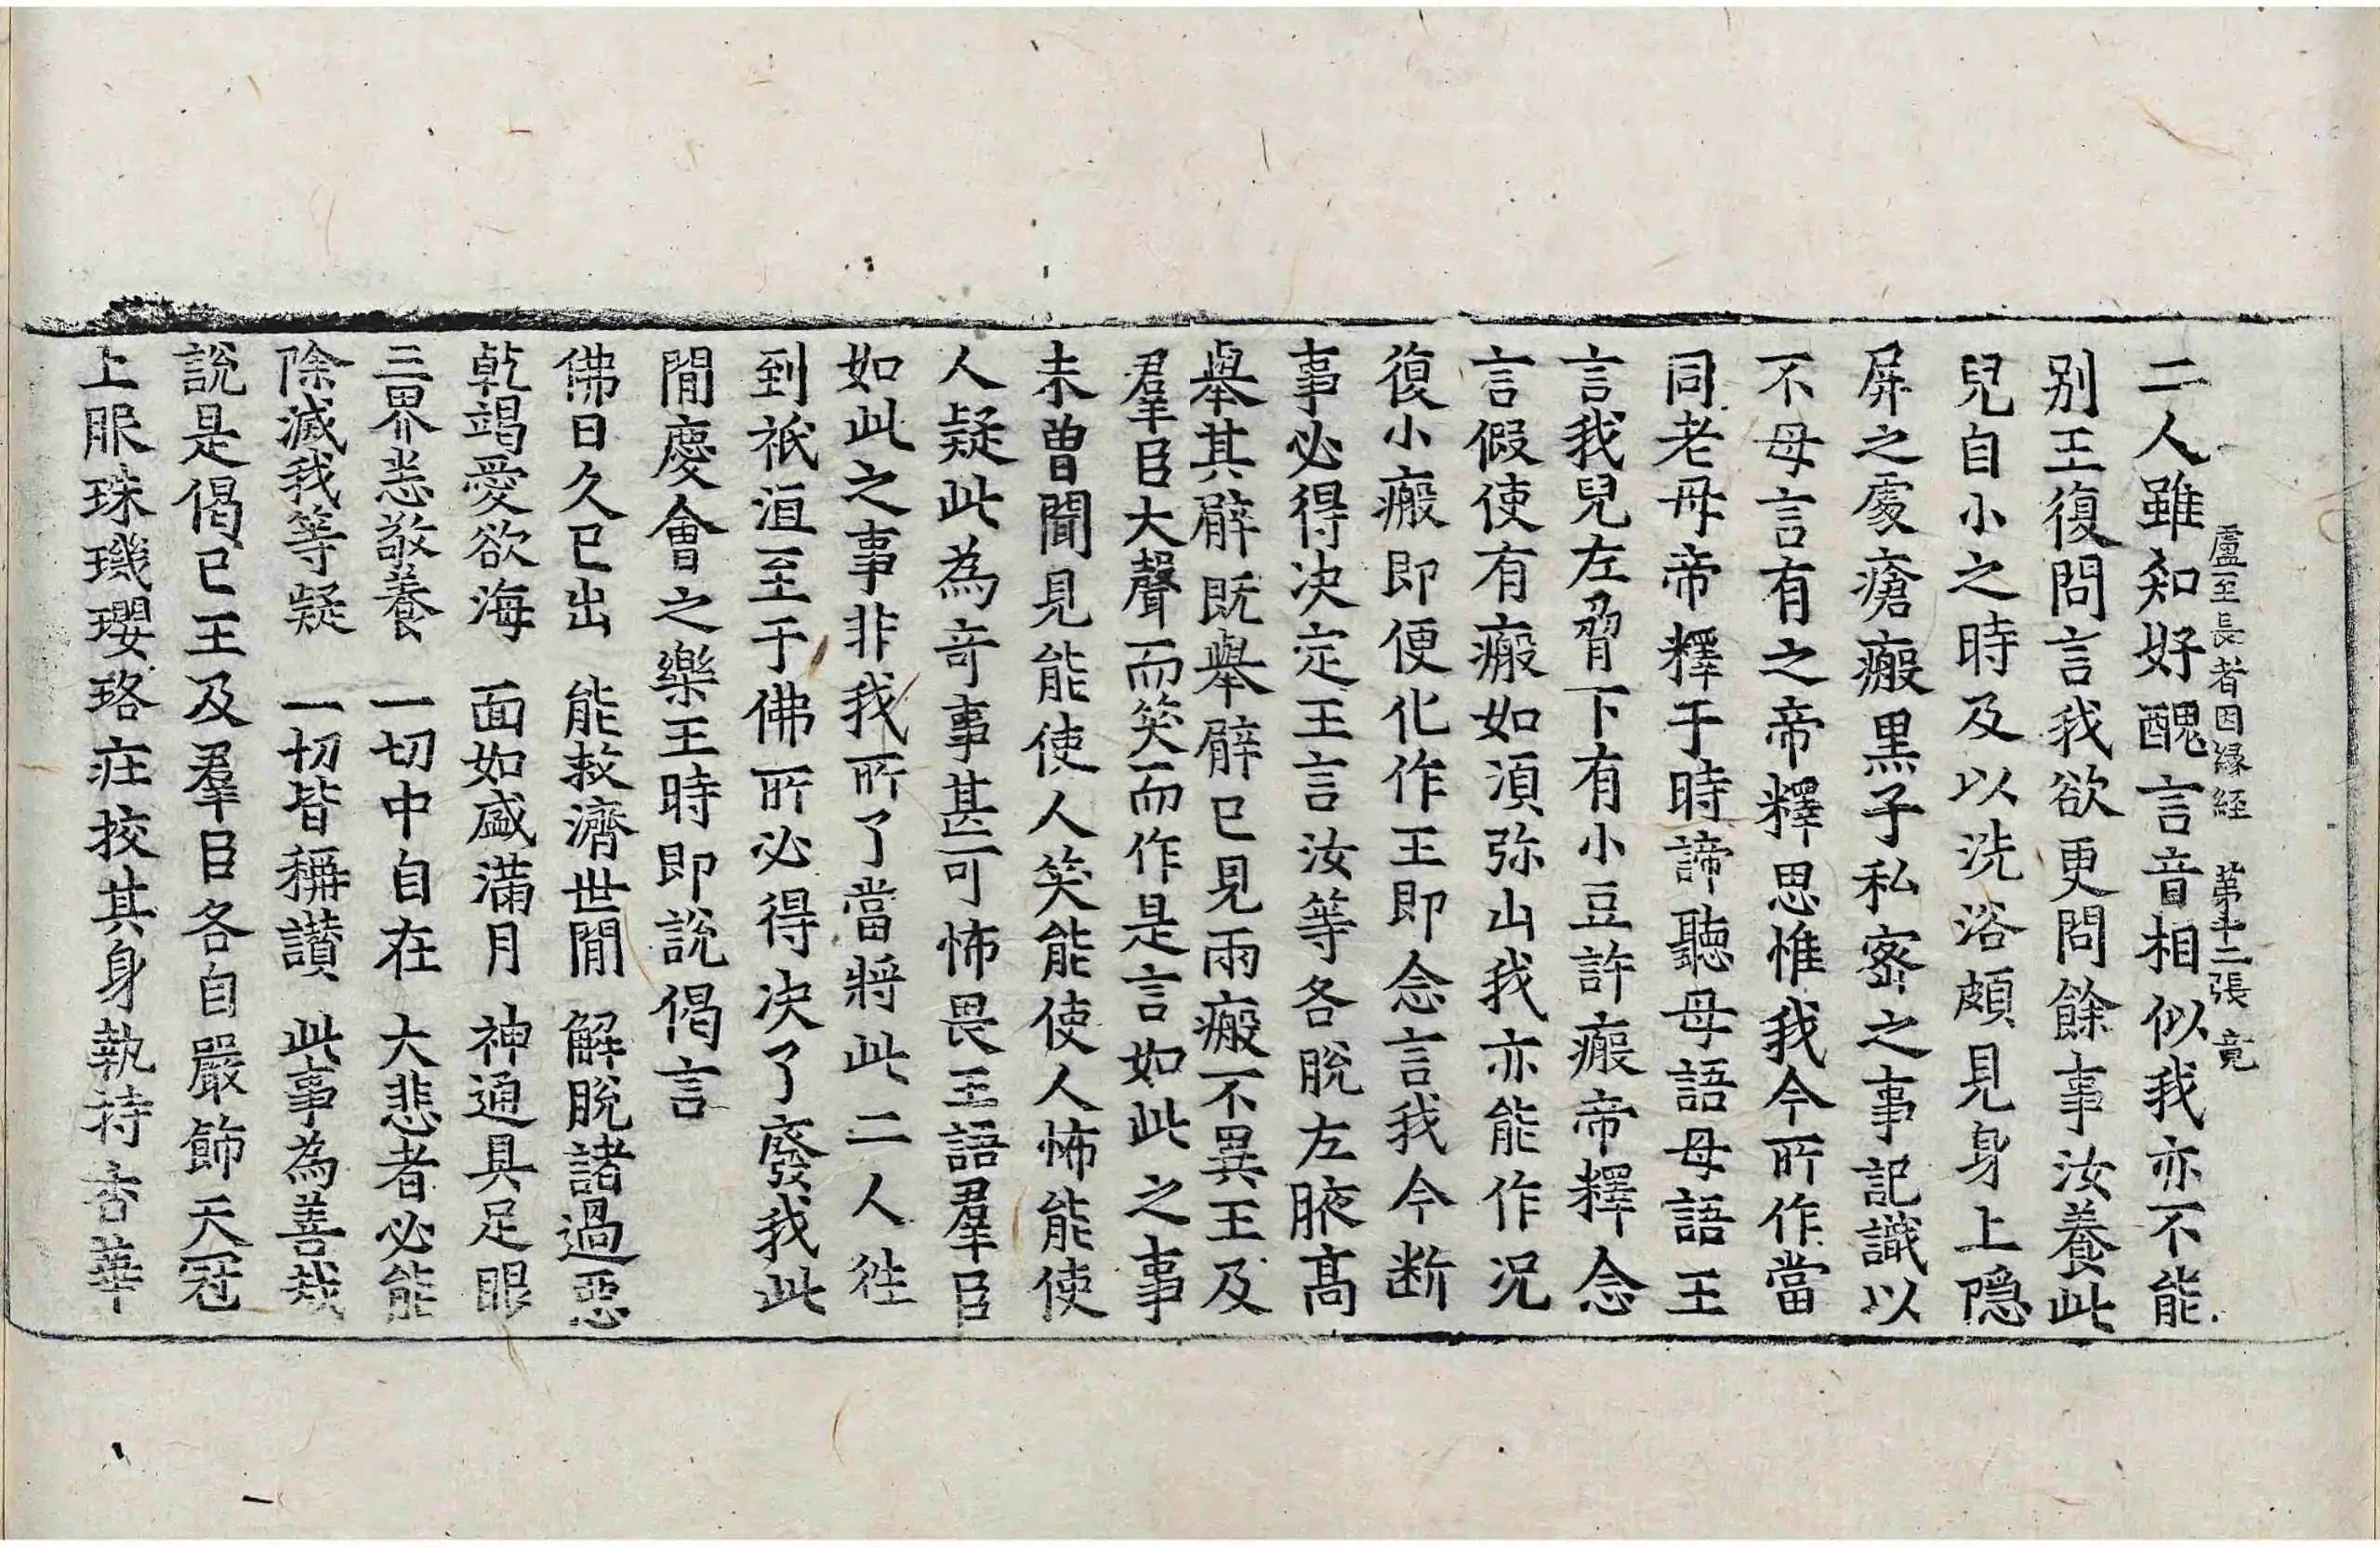 盧至長者因縁経　第十二張　竟
二人雖知好醜言音相似我亦不能
别王復問言我欲更問餘事汝養此
兒自小之時及以洗浴頗見身上隱
屏之處瘡瘢黒子私宻之事記識以
不母言有之帝釋思惟我今所作當
同老母帝釋于時諦聽母語母語王
言我兒左脅下有小豆許瘢帝釋念
言假使有瘢如湏弥山我亦能作况
復小瘢即便化作王即念言我今断
事必得决定王言汝等各脫左腋髙
舉其臂既舉臂已見兩瘢不異王及
羣臣大聲而笑而作是言如此之事
未曾聞見能使人笑能使人怖能使
人疑此為竒事甚可怖畏王語羣臣
如此之事非我所了當將此二人徃
到祇洹至于佛所必得决了廢我此
閒慶會之樂王時即說偈言
佛日久已出　能救濟世閒　解脫諸過惡
乾竭愛欲海　面如盛滿月　神通具足眼
三界悉敬養　一切中自在　大悲者必能
除滅我等疑　一切皆稱讃　此事為善哉
說是偈已王及羣臣各自嚴飾天冠
上服珠璣瓔珞莊挍其身執持香華